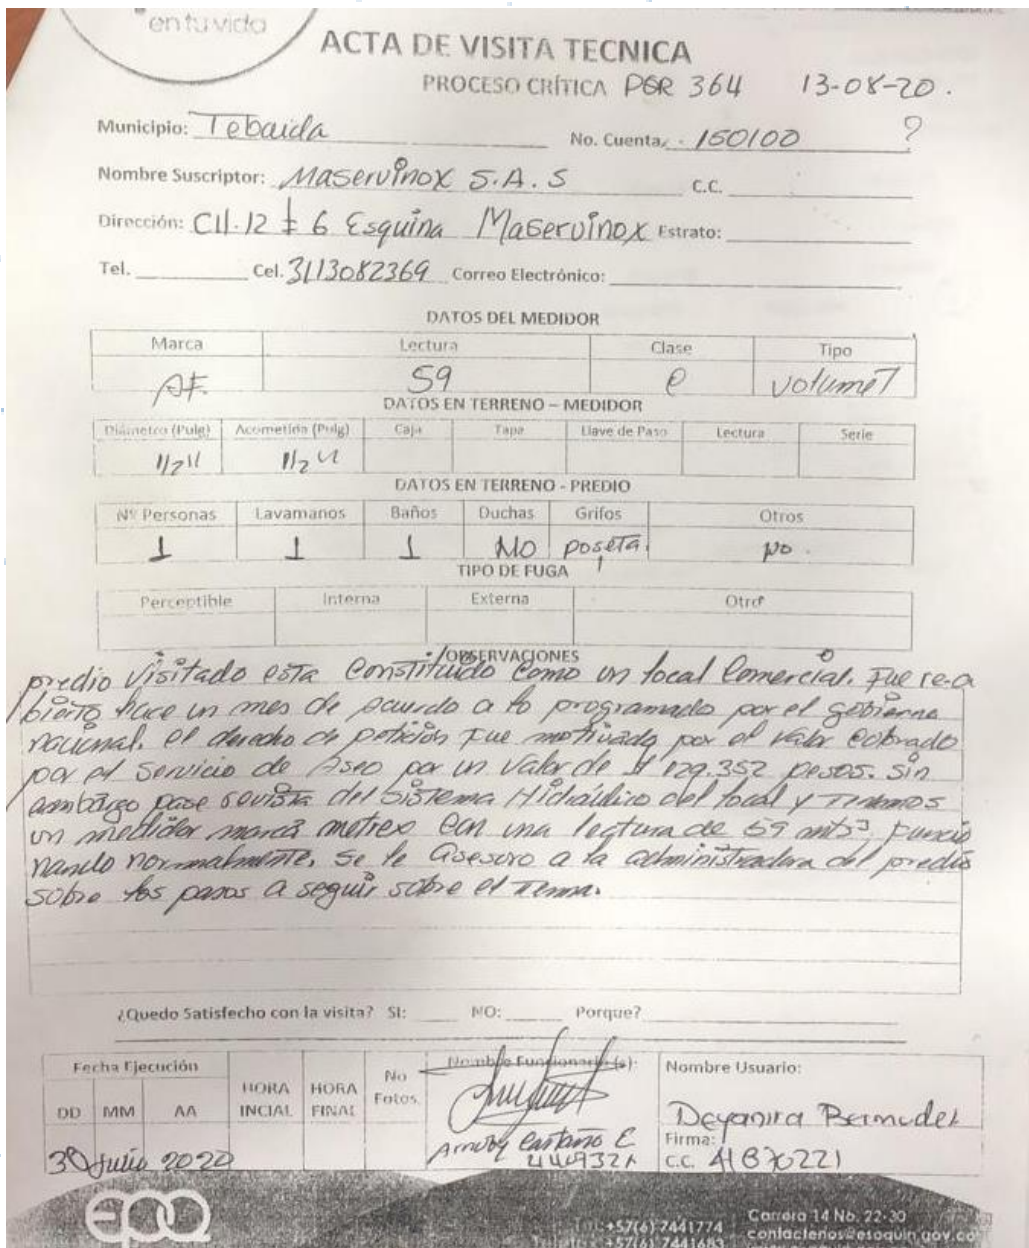 en tu vida
ACTA DE VISITA TECNICA
PROCESO CRÍTICA PQR 364 13-08-20.
Municipio: Tebaida No. Cuenta. 150100 ?
Nombre Suscriptor: Maservinox S.A.S C.C.
Dirección: Cll.12 # 6 Esquina Maservinox Estrato:
Tel. Cel. 3113082369 Correo Electrónico:
DATOS DEL MEDIDOR
Marca Lectura Clase Tipo
59 volumeT
DATOS EN TERRENO – MEDIDOR
Diámetro (Pulg) Acometida (Pulg) Caja Tapa Llave de Paso Lectura Serie
1/2" 1/2"
DATOS EN TERRENO - PREDIO
Nº Personas Lavamanos Baños Duchas Grifos Otros
1 1 1 NO poseta 1 No.
TIPO DE FUGA
Perceptible Interna Externa Otro
OBSERVACIONES
predio visitado esta constituido como un local comercial. fue re-a
bierto hace un mes de acuerdo a lo programado por el gobierno
nacional. el derecho de petición fue motivado por el valor cobrado
por el servicio de Aseo por un valor de $ 129.352 pesos. sin
embargo pase revista del sistema Hidráulico del local y Tenemos
un medidor marca metrex con una lectura de 59 mts3 funcio
nando normalmente. se le asesoro a la administradora del predio
sobre los pasos a seguir sobre el Tema.
¿Quedo Satisfecho con la visita? SI: NO: Porque?
Fecha Ejecución HORA INCIAL HORA FINAL No Fotos. Nombre Funcionario (s): Nombre Usuario:
DD MM AA Deyanira Bermudez
30 Julio 2020 Castaño E Firma:
C.C. 41870221
epq
+57(6) 7441774 Carrera 14 No. 22-30
+57(6) 7441683 contactenos@esaquin.gov.co